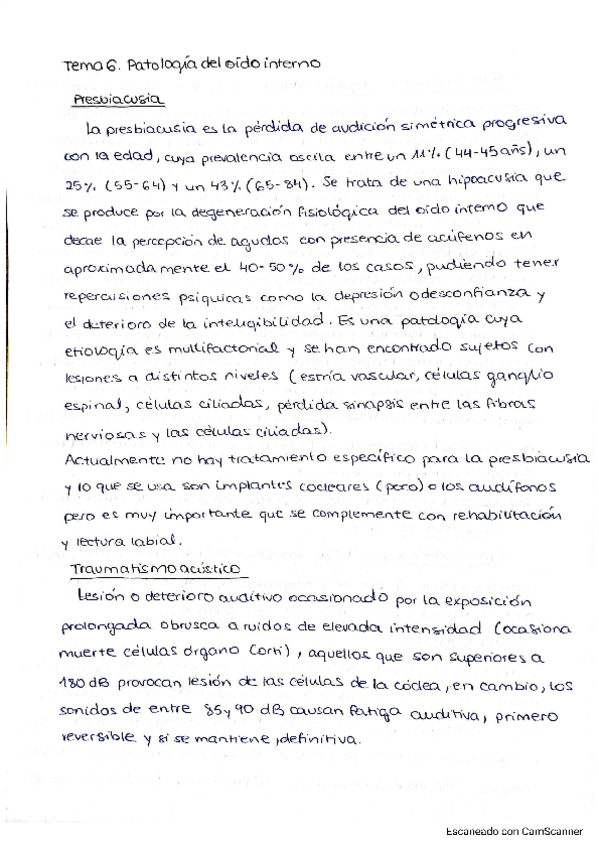 Tema 6. Patología del oído interno
Presbiacusia
La presbiacusia es la pérdida de audición simétrica progresiva
con la edad, cuya prevalencia oscila entre un 11% (44-45 añs), un
25% (55-64) y un 43% (65-84). Se trata de una hipoacusia que
se produce por la degeneración fisiológica del oído interno que
decae la percepción de agudos con presencia de acúfenos en
aproximadamente el 40-50% de los casos, pudiendo tener
repercusiones psíquicas como la depresión o desconfianza y
el deterioro de la inteligibilidad. Es una patología cuya
etiología es multifactorial y se han encontrado sujetos con
lesiones a distintos niveles (estría vascular, células ganglio
espinal, células ciliadas, pérdida sinapsis entre las fibras
nerviosas y las células ciliadas).
Actualmente no hay tratamiento específico para la presbiacusia
y lo que se usa son implantes cocleares (pero) o los audífonos
pero es muy importante que se complemente con rehabilitación
y lectura labial.
Traumatismo acústico
Lesión o deterioro auditivo ocasionado por la exposición
prolongada o brusca a ruidos de elevada intensidad (ocasiona
muerte células órgano Corti), aquellos que son superiores a
180 dB provocan lesión de las células de la cóclea, en cambio, los
sonidos de entre 85 y 90 dB causan fatiga auditiva, primero
reversible y si se mantiene, definitiva.
Escaneado con CamScanner